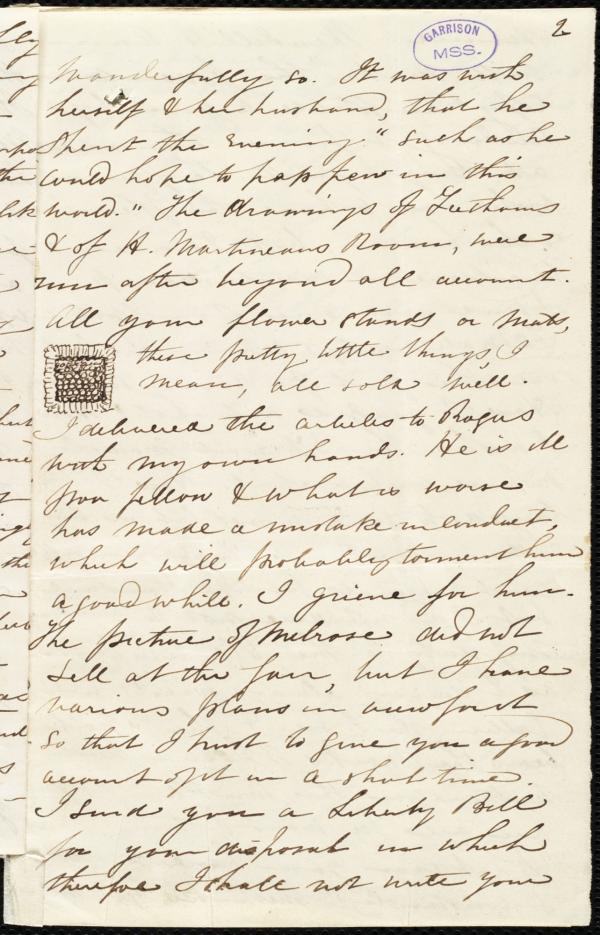 2
GARRISON
MSS.
Wonderfully so. It was with
herself & her husband, that he
spent the Evening "such as he
could hope to happen in this
world." The drawings of
& of H. Martineaus Room, were
run after beyond all account.
All your flower stands or mats,
these pretty little things, I
mean, all sold well.
I delivered the articles to Rogers
with my own hands. He is ill
poor fellow & what is worse
has made a mistake in conduct,
which will probably torment him
a good while. I grieve for him.
The picture of Melrose did not
sell at the fair, but I have
various plans in view for it
so that I trust to give you a good
account of it in a short time.
I send you a Liberty Bell
for your disposal in which
therefore I shall not write your